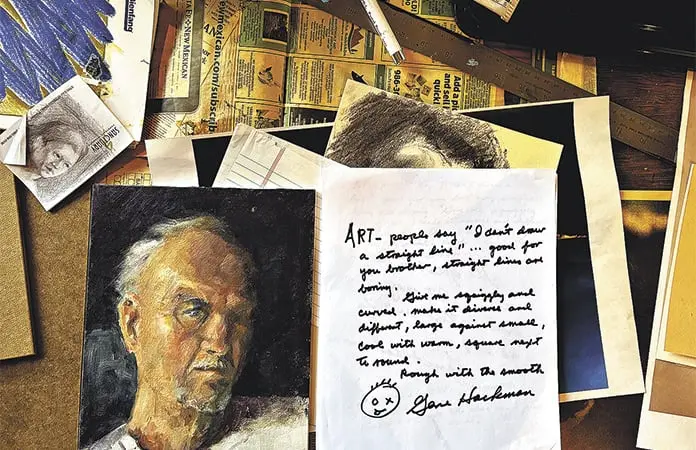 SANTA FE NEW MEXICAN
mexican.com/subscri
986-3
Add a
and sell
quickl
ART- people say "I can't draw
a straight line" ... good for
you brother, straight lines are
boring.
Give me squiggly and
curved. make it diverse and
different, large against small,
cool with warm, square next
to round.
Rough with the smooth
Gene Hackman